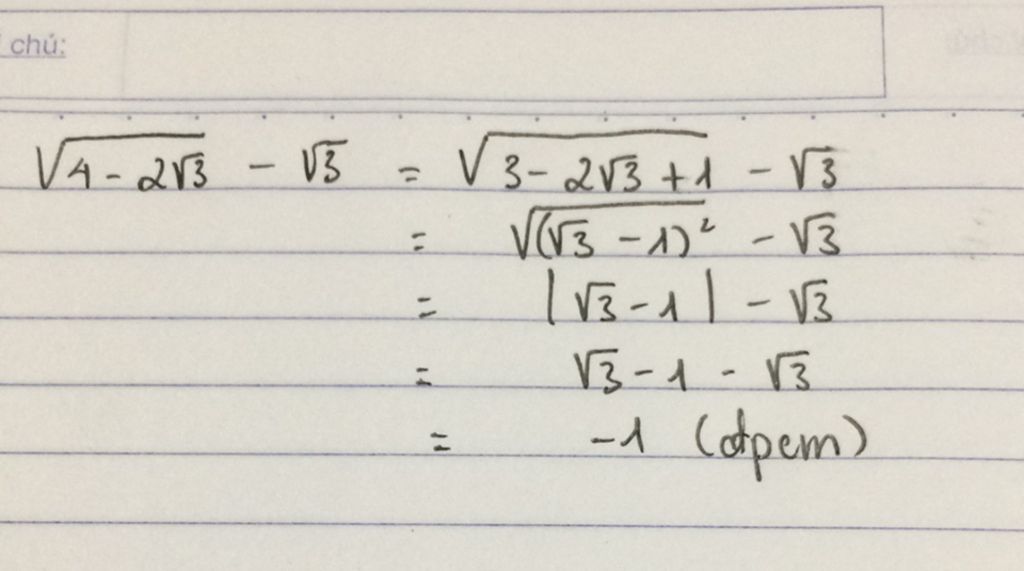 chú:
√(4 - 2√3) - √3 = √(3 - 2√3 + 1) - √3
= √((√3 - 1)²) - √3
= |√3 - 1| - √3
= √3 - 1 - √3
= -1 (đpcm)